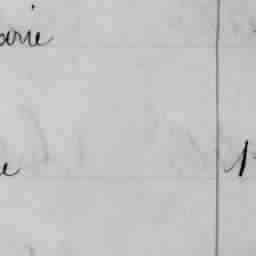 arie
e
1